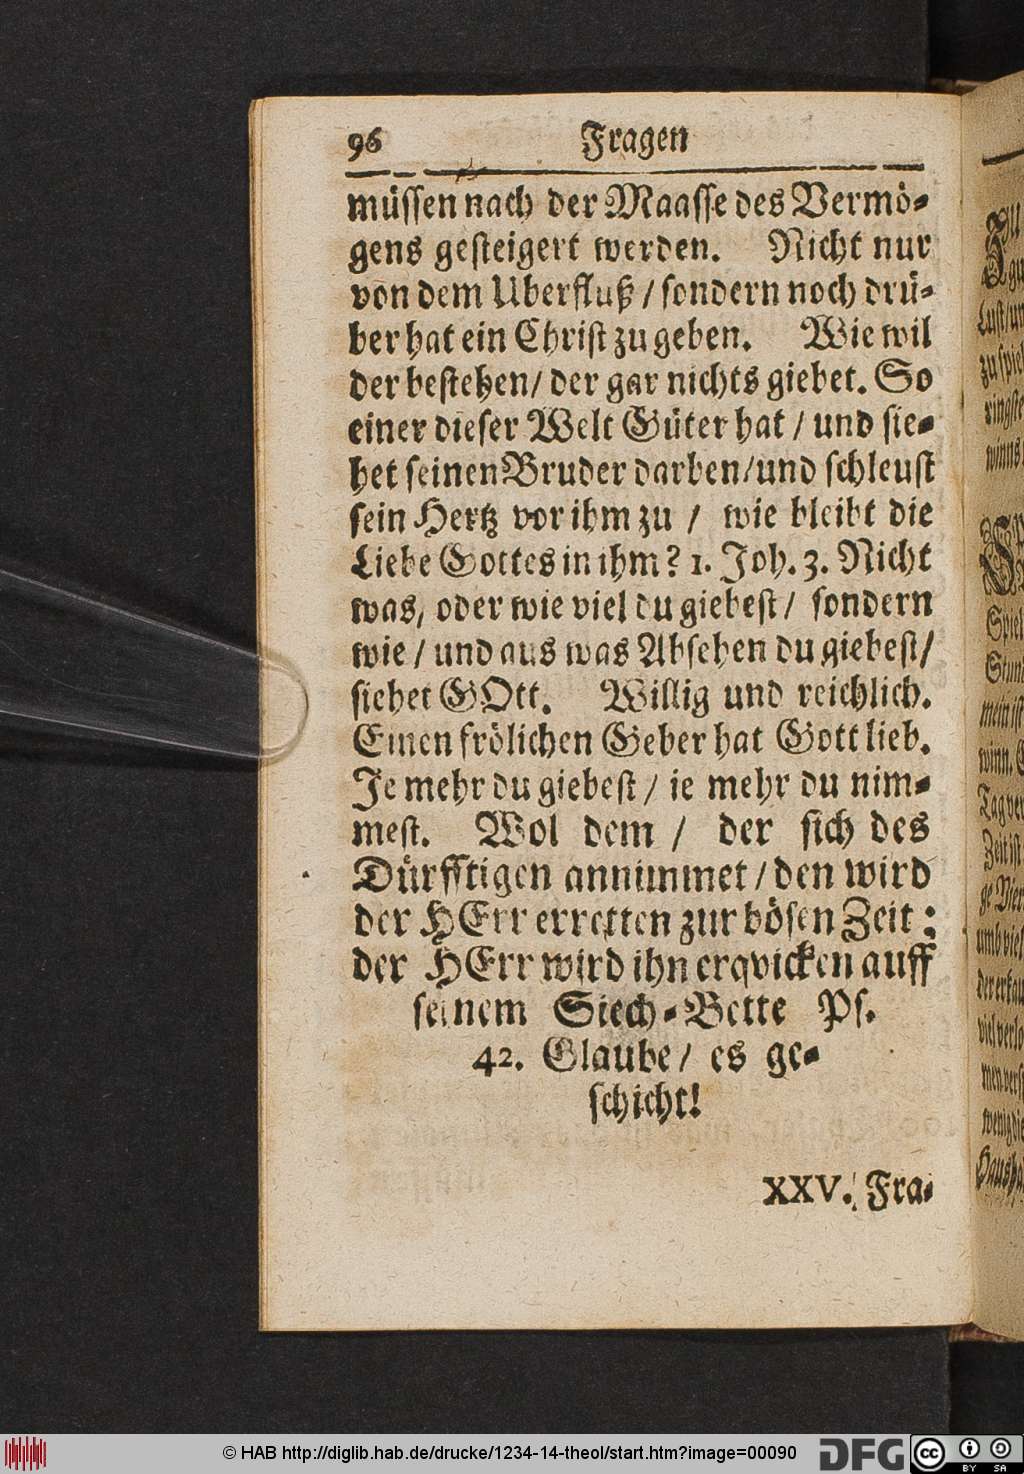 96 Fragen
müssen nach der Maasse des Vermö-
gens gesteigert werden. Nicht nur
von dem Uberfluß / sondern noch drü-
ber hat ein Christ zu geben. Wie wil
der bestehen / der gar nichts giebet. So
einer dieser Welt Güter hat / und sie-
het seinen Bruder darben / und schleust
sein Hertz vor ihm zu / wie bleibt die
Liebe Gottes in ihm? 1. Joh. 3. Nicht
was, oder wie viel du giebest / sondern
wie / und aus was Absehen du giebest /
siehet GOtt. Willig und reichlich.
Einen frölichen Geber hat Gott lieb.
Je mehr du giebest / ie mehr du nim-
mest. Wol dem / der sich des
Dürfftigen annimmet / den wird
der HErr erretten zur bösen Zeit:
der HErr wird ihn erqvicken auff
seinem Siech-Bette Ps.
42. Glaube / es ge-
schicht!
XXV. Fra-
Spiel
© HAB http://diglib.hab.de/drucke/1234-14-theol/start.htm?image=00090
DFG
cc BY SA